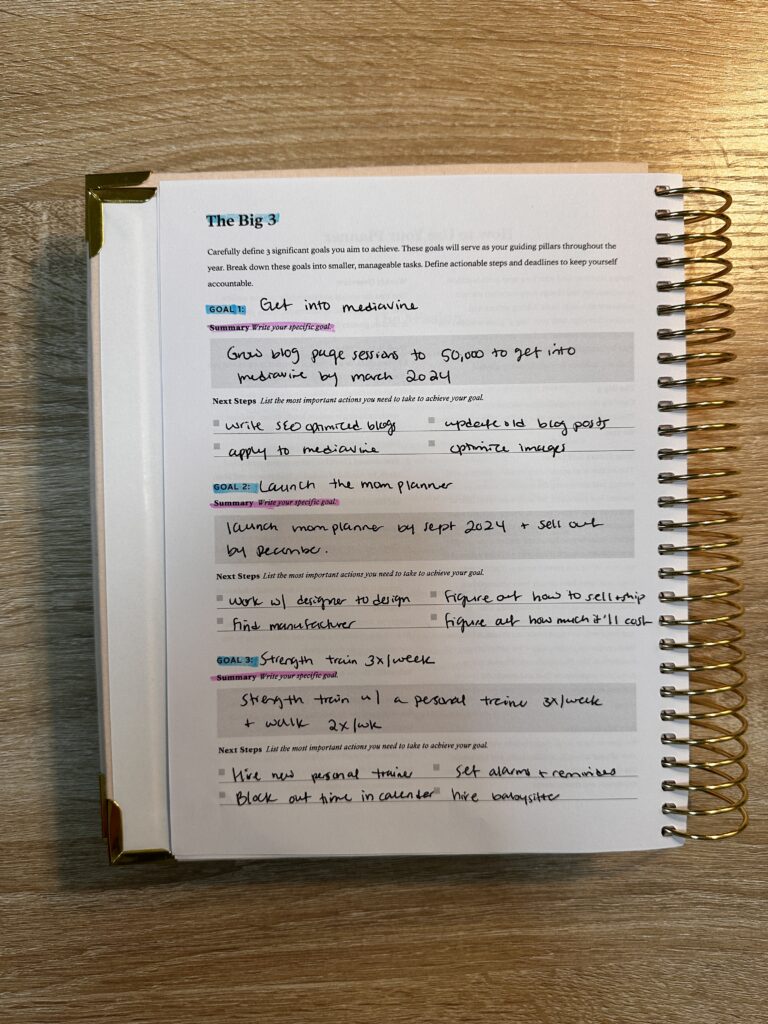 The Big 3
Carefully define 3 significant goals you aim to achieve. These goals will serve as your guiding pillars throughout the
year. Break down these goals into smaller, manageable tasks. Define actionable steps and deadlines to keep yourself
accountable.
GOAL 1: Get into mediavine
Summary Write your specific goal.
Grow blog page sessions to 50,000 to get into
mediavine by march 2024
Next Steps List the most important actions you need to take to achieve your goal.
write SEO optimized blogs update old blog posts
apply to mediavine optimize images
GOAL 2: Launch the mom planner
Summary Write your specific goal.
launch mom planner by sept 2024 + sell out
by December.
Next Steps List the most important actions you need to take to achieve your goal.
work w/ designer to design Figure out how to sell + ship
find manufacturer Figure out how much it'll cost
GOAL 3: Strength train 3x/week
Summary Write your specific goal.
Strength train w/ a personal trainer 3x/week
+ walk 2x/wk
Next Steps List the most important actions you need to take to achieve your goal.
Hire new personal trainer set alarms + reminders
Block out time in calender hire babysitter